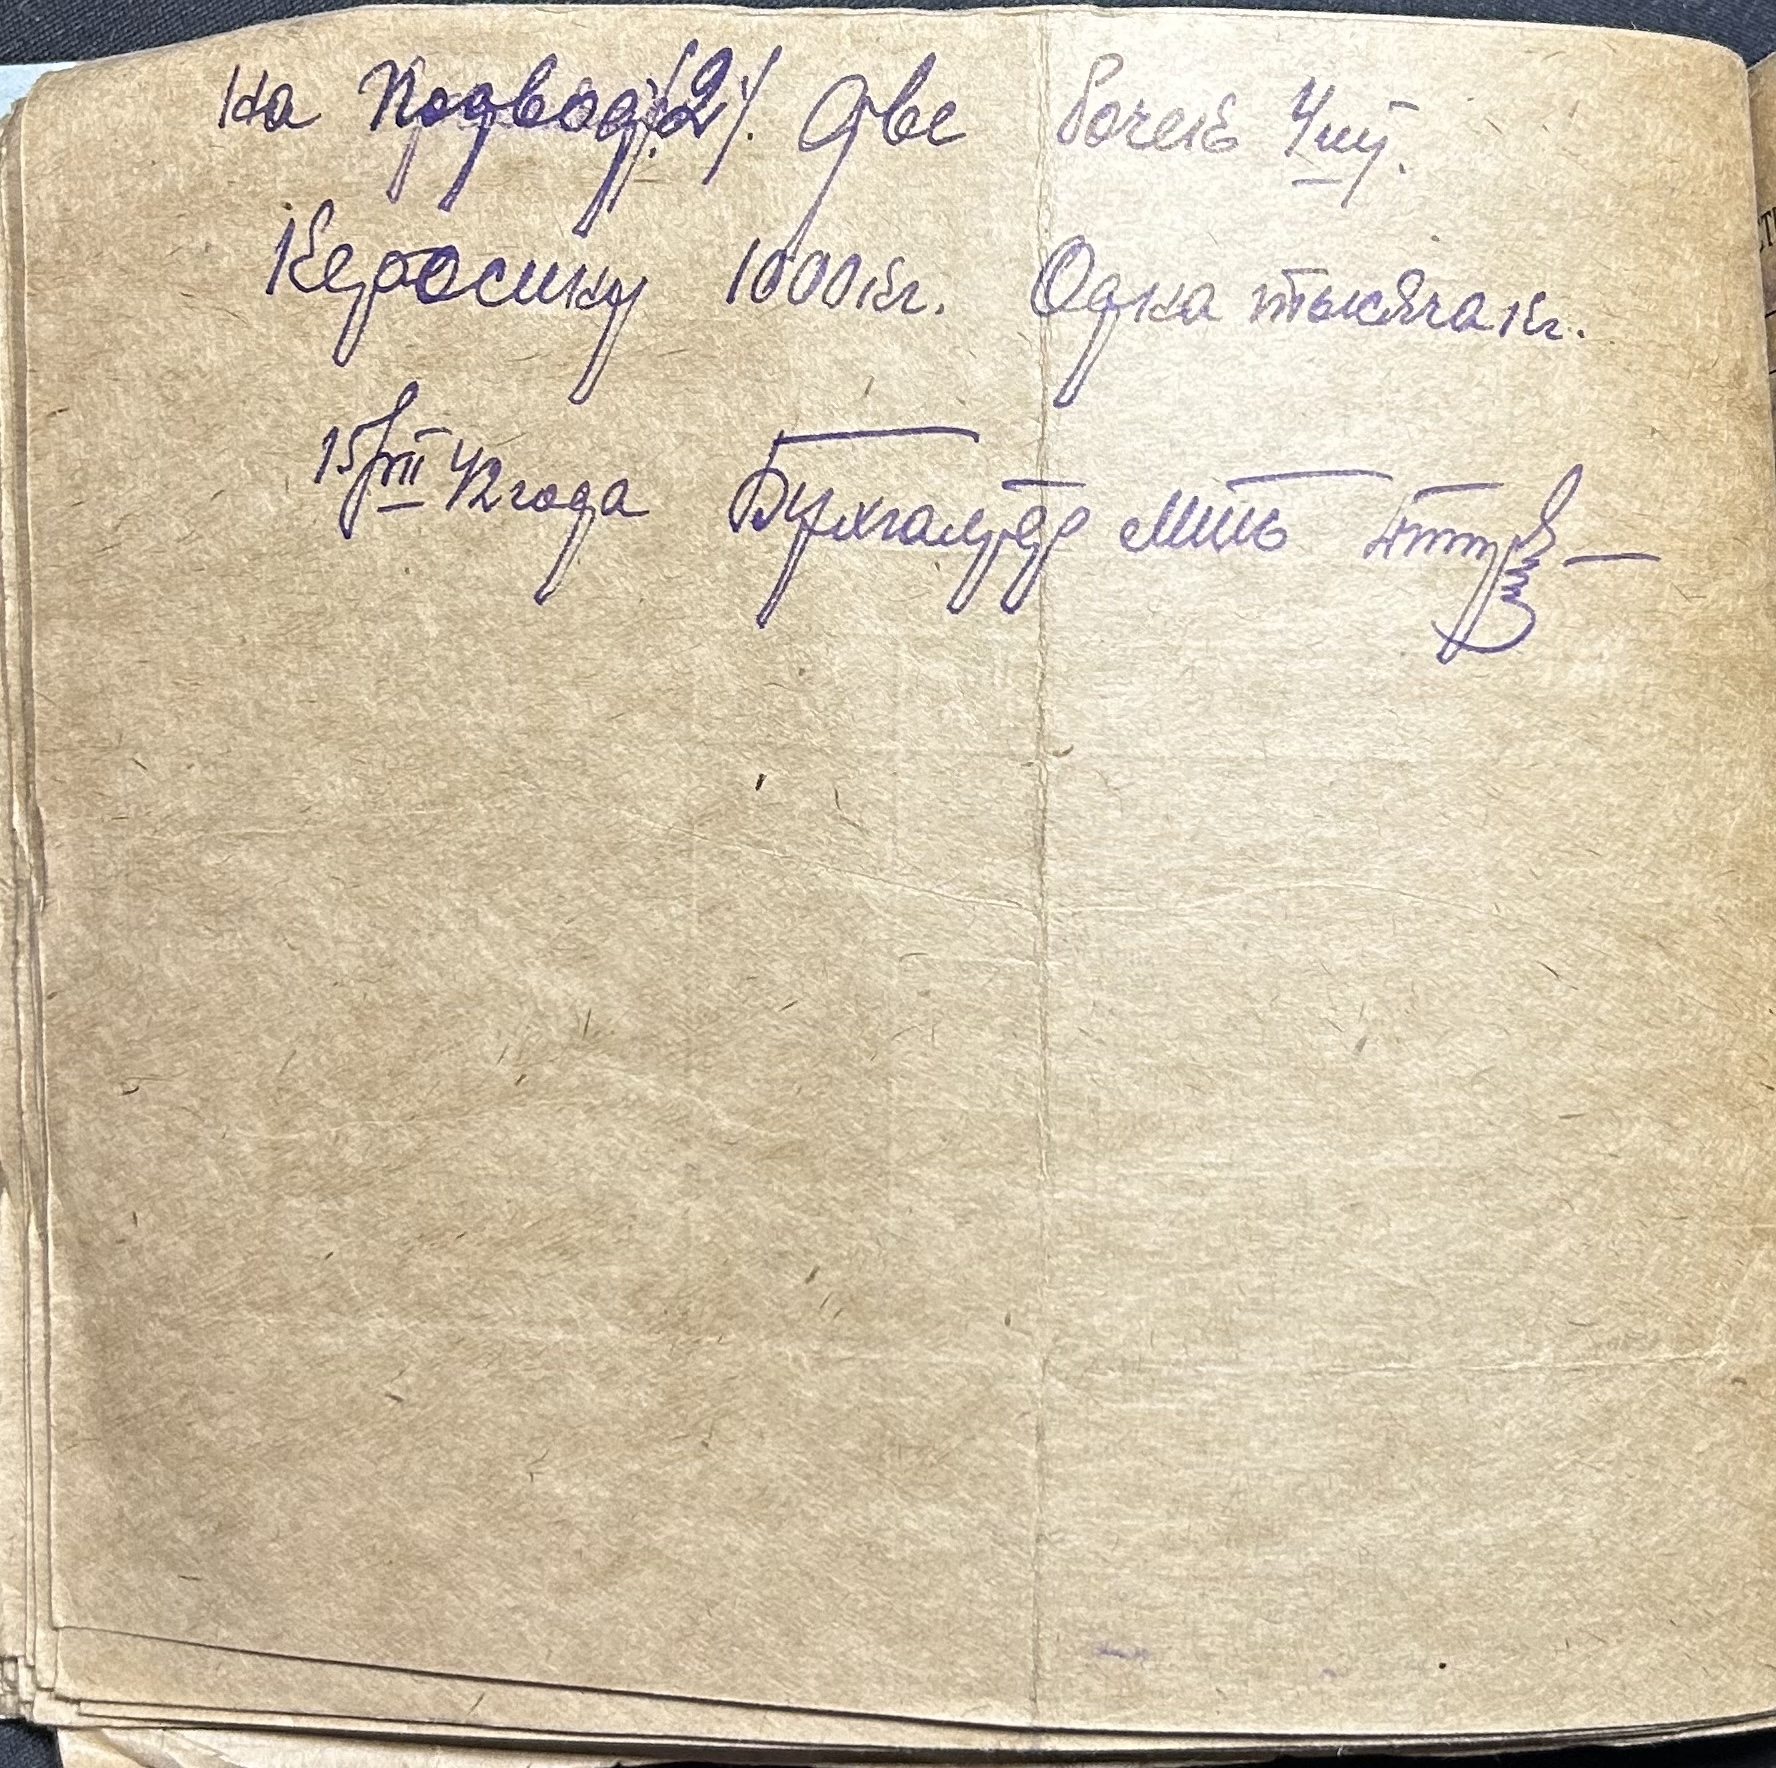 на подвод /2/. две бочек 4 шт.
Керосину 1000 кг. Одна тысяча кг.
15/VII 42 года Бухгалтер